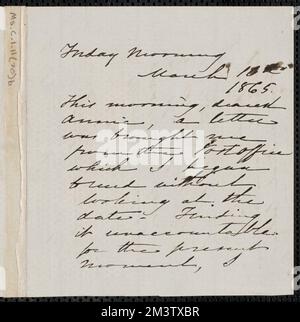 Friday Morning
March 10th
1865.
This morning, dearest
Annie, a letter
was brought me
from the Post office
which I began
to read without
looking at the
date. Finding
it unaccountable
for the present
moment, I
alamy
Image ID: 2M3TXBR
www.alamy.com